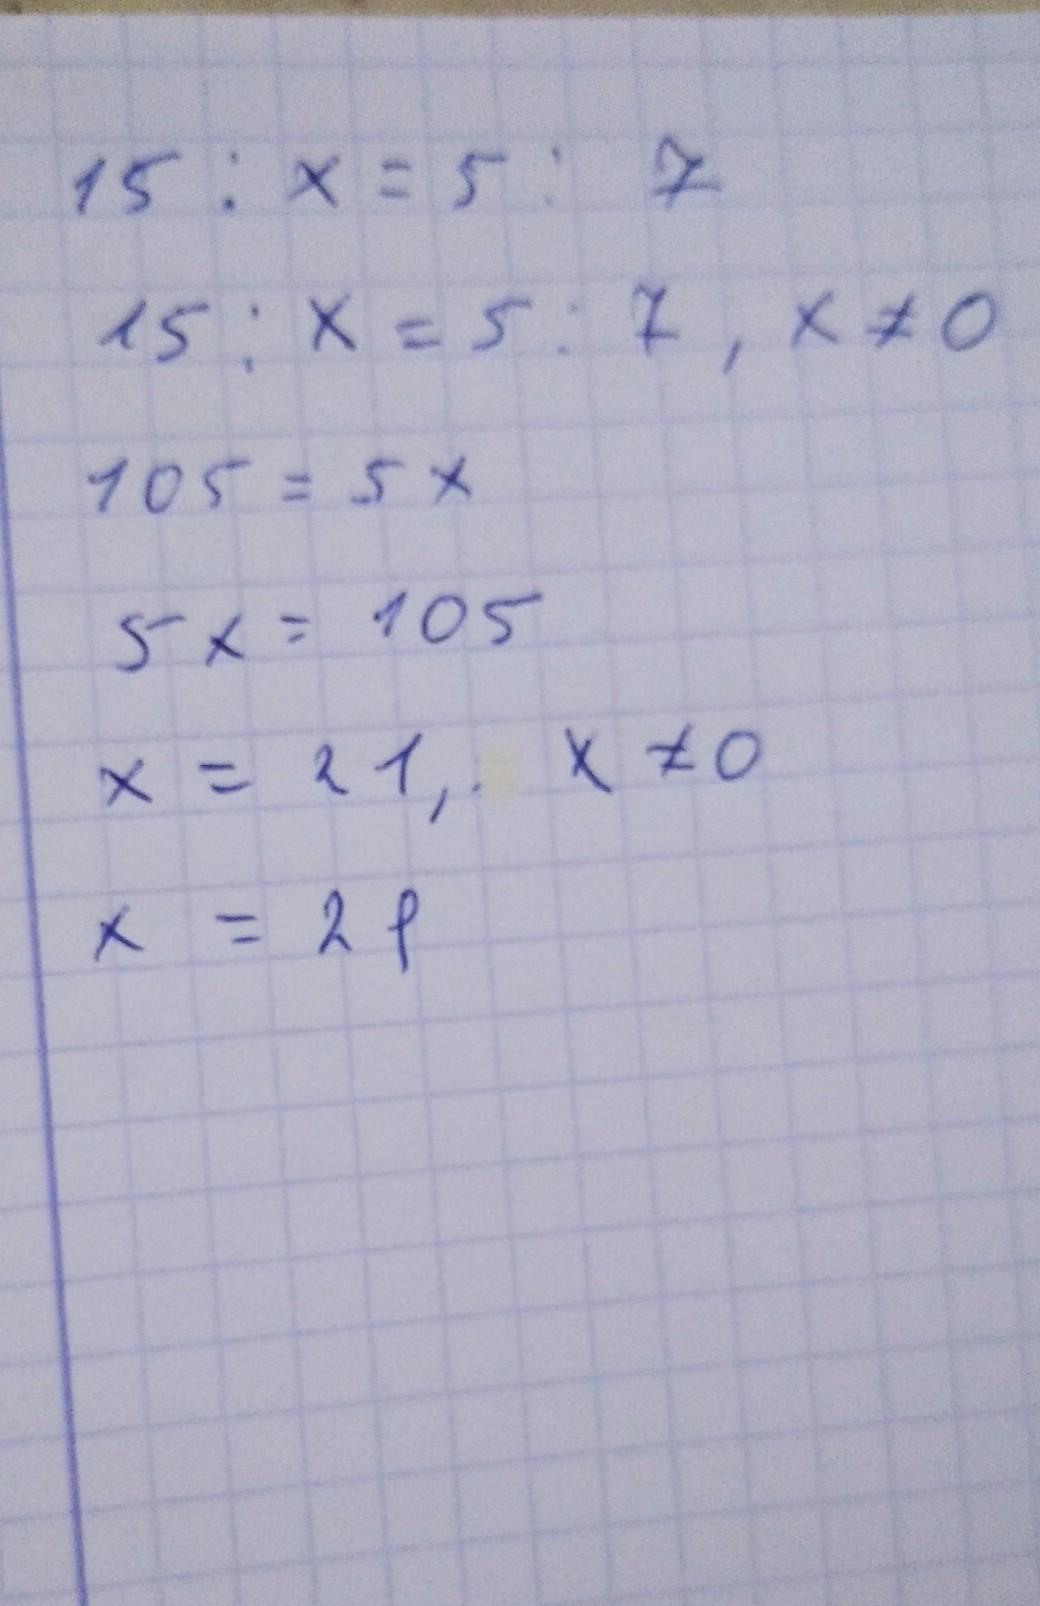 15 : x = 5 : 7
15 : x = 5 : 7 , x ≠ 0
105 = 5x
5x = 105
x = 21, x ≠ 0
x = 21